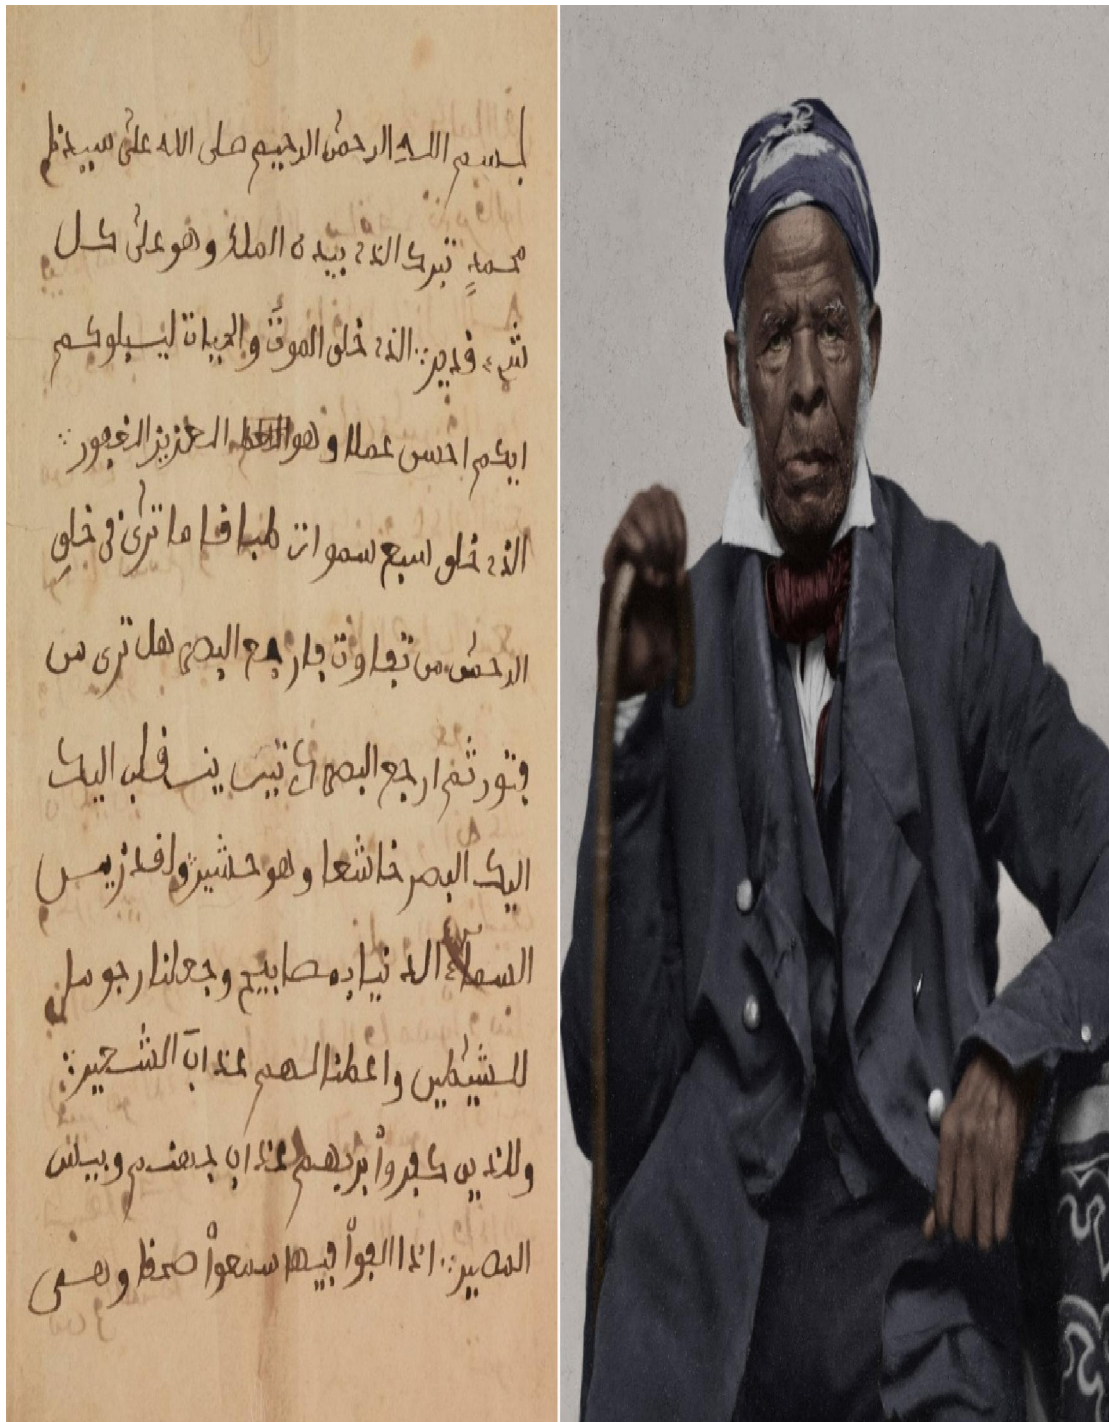 بسم الله الرحمن الرحيم صلى الله على سيدنا
محمد تبرك الذي بيده الملك وهو على كل
شيء قدير الذي خلق الموت والحيات ليبلوكم
ايكم احسن عملا وهو العزيز الغفور
الذي خلق سبع سموات طباقا ما ترى في خلق
الرحمن من تفاوت فارجع البصر هل ترى من
فتور ثم ارجع البصر ينقلب اليك
اليك البصر خاشعا وهو حسير ولقد زين
السماء الدنيا بمصابيح وجعلنا رجوما
للشيطين واعطنا لهم عذاب الشعير
وللذين كفروا بربهم عذاب جهنم وبيس
المصير اذا القوا فيها سمعوا